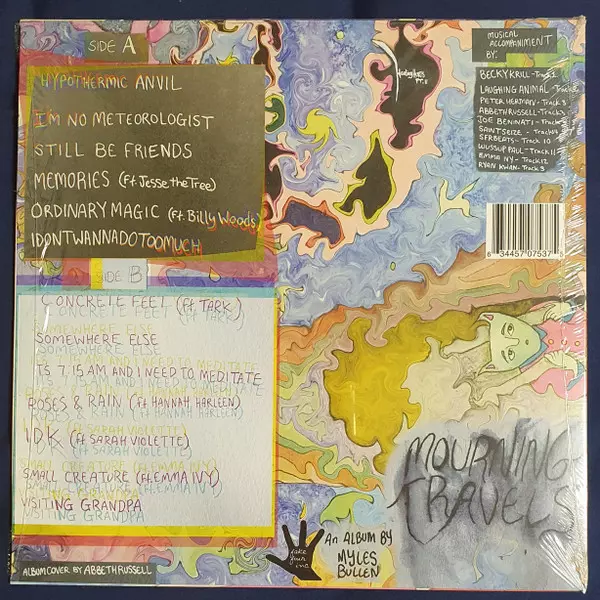 SIDE A
HYPOTHERMIC ANVIL
I'M NO METEOROLOGIST
STILL BE FRIENDS
MEMORIES (Ft. Jesse the Tree)
ORDINARY MAGIC (Ft. Billy Woods)
IDONTWANNADOTOOMUCH
SIDE B
CONCRETE FEET (Ft TARK)
SOMEWHERE ELSE
ITS 7.15 AM AND I NEED TO MEDITATE
ROSES & RAIN (Ft HANNAH HARLEEN)
IDK (Ft SARAH VIOLETTE)
SMALL CREATURE (Ft. EMMA IVY)
VISITING GRANDPA
ALBUM COVER BY ABBETH RUSSELL
PT. II
MUSICAL
ACCOMPANIMENT
BY:
BECKY KRILL - Track 1
LAUGHING ANIMAL - Track
PETER HERMAN - Track 3
ABBETH RUSSELL - Track
JOE BENINATI - Track
SAINT SEIZE - Track
SFRBEATS - Track 10
WUSSUP PAUL - Track 11
EMMA IVY - Track 12
RYAN KWAN - Track 9
6 34457 07537 5
MOURNING
TRAVELS
AN ALBUM BY
MYLES
BULLEN
fake
four
inc.